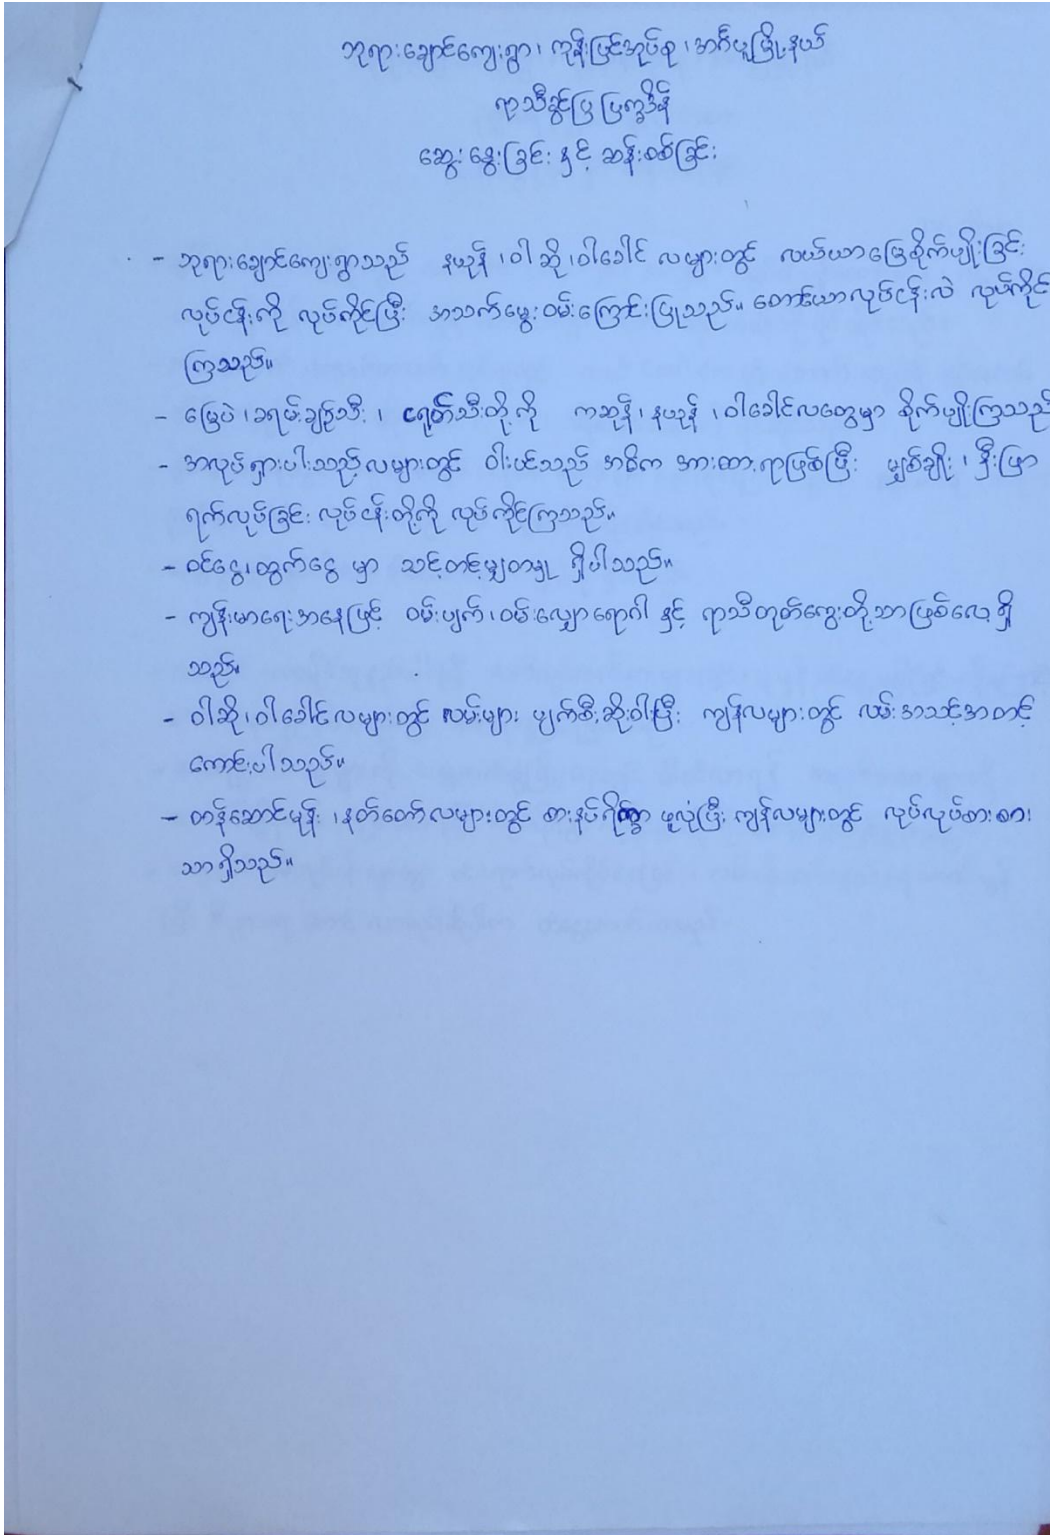 ဘုရားချောင်ကျေးရွာ၊ ကုန်းပြင်အုပ်စု၊ အင်္ဂပူမြို့နယ်
ရာသီခွင်ပြ ပြက္ခဒိန်
ဆွေးနွေးခြင်း နှင့် ဆန်းစစ်ခြင်း
- ဘုရားချောင်ကျေးရွာသည် နယုန်၊ ဝါဆို၊ ဝါခေါင် လများတွင် လယ်ယာမြေစိုက်ပျိုးခြင်း
လုပ်ငန်းကို လုပ်ကိုင်ပြီး အသက်မွေးဝမ်းကြောင်းပြုသည်။ တောင်ယာလုပ်ငန်းလဲ လုပ်ကိုင်
ကြသည်။
- မြေပဲ၊ ခရမ်းချဉ်သီး၊ ငရုတ်သီးတို့ကို ကဆုန်၊ နယုန်၊ ဝါခေါင်လတွေမှာ စိုက်ပျိုးကြသည်
- အလုပ်ရှားပါးသည့်လများတွင် ဝါးပင်သည် အဓိက အားထားရာဖြစ်ပြီး မျှစ်ချိုး၊ နှီးဖြာ
ရက်လုပ်ခြင်း လုပ်ငန်းတို့ကို လုပ်ကိုင်ကြသည်။
- ဝင်ငွေ၊ ထွက်ငွေ မှာ သင့်တင့်မျှတမှု ရှိပါသည်။
- ကျန်းမာရေးအနေဖြင့် ဝမ်းပျက်၊ ဝမ်းလျှောရောဂါ နှင့် ရာသီတုတ်ကွေးတို့သာဖြစ်လေ့ရှိ
သည်။
- ဝါဆို၊ ဝါခေါင်လများတွင် လမ်းများ ပျက်စီးဆိုးဝါးပြီး ကျန်လများတွင် လမ်းအသင့်အတင့်
ကောင်းပါသည်။
- တန်ဆောင်မုန်း၊ နတ်တော်လများတွင် စားနပ်ရိက္ခာ ဖူလုံပြီး ကျန်လများတွင် လုပ်လုပ်စားစား
သာရှိသည်။